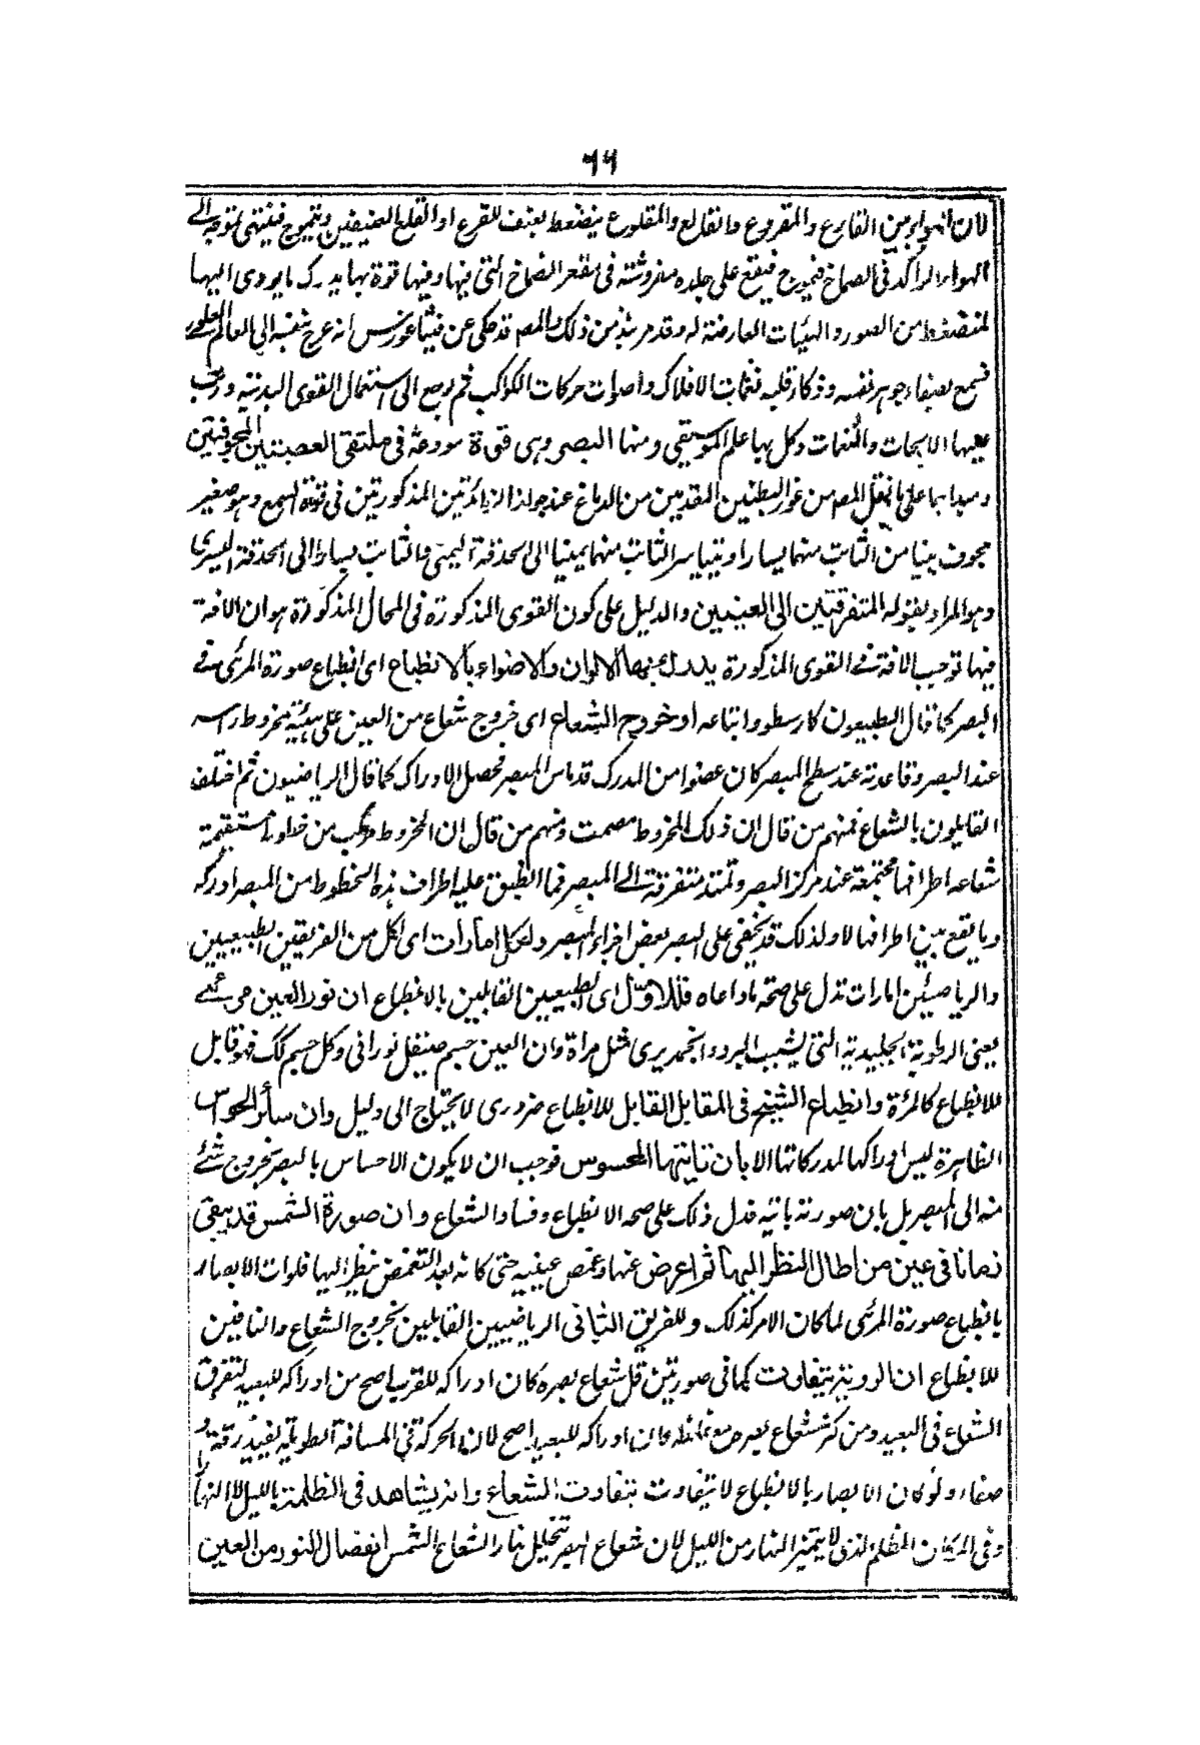 ٦٦
لان الهواء بين القارع والمقروع والقالع والمقلوع ينضغط بعنف للقرع او القلع العنيفين ويتموج فينتهى تموجه الى
الهواء الراكد فى الصماخ فيموج فيقع على جلدة مفروشة فى مقعر الصماخ التى فيها وفيها قوة بها يدرك ما يودى اليها
المنضغط من الصور والهيئات العارضة له وقد مر نبذ من ذلك المص قد حكى عن فيثاغورس انه عرج بنفسه الى العالم العلوى
فسمع بصفاء جوهر نفسه وذكاء قلبه نغمات الافلاك واصوات حركات الكواكب ثم رجع الى استعمال القوى البدنية ورتب
عليها الالحان والنغمات وكمل بها علم الموسيقى ومنها البصر وهى قوة مودعة فى ملتقى العصبتين المجوفتين
ومبداهما على ما نقل المص من غور البطنين المقدمين من الدماغ عند جواز الزائدتين المذكورتين فى قوة السمع وهو صغير
مجوف يتيامن الثابت منهما يسارا ويتياسر الثابت منهما يمينا الى الحدقة اليمنى والثابت يسارا الى الحدقة اليسرى
وهو المراد بقوله المتفرقتين الى العينين والدليل على كون القوى المذكورة فى المحال المذكورة هو ان الافة
فيها توجب الافة فى القوى المذكورة يدرك بها الالوان والاضواء بالانطباع اى انطباع صورة المرئى فى
البصر كما قال الطبيعون كارسطو واتباعه او خروج الشعاع اى خروج شعاع من العين على هيئة مخروط راسه
عند البصر وقاعدته عند سطح المبصر كان عضوا من المدرك قد ماس المبصر فحصل الادراك كما قال الرياضيون ثم اختلف
القايلون بالشعاع فمنهم من قال ان ذلك المخروط مصمت ومنهم من قال ان المخروط مركب من خطوط مستقيمة
شعاعه اطرافها مجتمعة عند مركز البصر وتمتد متفرقة الى المبصر فما انطبق عليه اطراف هذه الخطوط من المبصر ادركه
وما يقع بين اطرافها لا ولذلك قد يخفى على البصر بعض اجزاء المبصر ولكل امارات اى لكل من الفريقين الطبيعيين
والرياضيين امارات تدل على صحة ما ادعاه فللاول اى الطبيعيين القايلين بالانطباع ان نور العين مرئى
يعنى الرطوبة الجليدية التى يشبه البرد والجمد يرى مثل مراة وان العين جسم صقيل نورانى وكل جسم كك فهو قابل
للانطباع كالمرءة وانطباع الشبح فى المقابل القابل للانطباع ضرورى لا يحتاج الى دليل وان سائر الحواس
الظاهرة ليس ادراكها لمدركاتها الا بان تاتيها المحسوس فوجب ان لا يكون الاحساس بالبصر بخروج شئ
منه الى المبصر بل بان صورته تاتيه فدل ذلك على صحة الانطباع وفساد الشعاع وان صورة الشمس قد يبقى
زمانا فى عين من اطال النظر اليها ثم اعرض عنها وغمض عينيه حتى كانه بعد التغمض ينظر اليها فلولا ان الابصار
بانطباع صورة المرئى لما كان الامر كذلك وللفريق الثانى الرياضيين القايلين بخروج الشعاع والنافين
للانطباع ان الروية يتفاوت كما فى صورتين قل شعاع بصره كان ادراكه للقريب اصح من ادراكه للبعيد لتفرق
الشعاع فى البعيد ومن كثر شعاع بصره مع غلظه كان ادراكه للبعيد اصح لان الحركة فى المسافة الطويلة يفيد رقة و
صفاء ولو كان الابصار بالانطباع لا يتفاوت بتفاوت الشعاع وانه يشاهد فى الظلمة بالليل لا النهار
وفى المكان المظلم الذى لا يتميز النهار من الليل لان شعاع البصر يتحلل نهارا لشعاع الشمس انفصال النور من العين